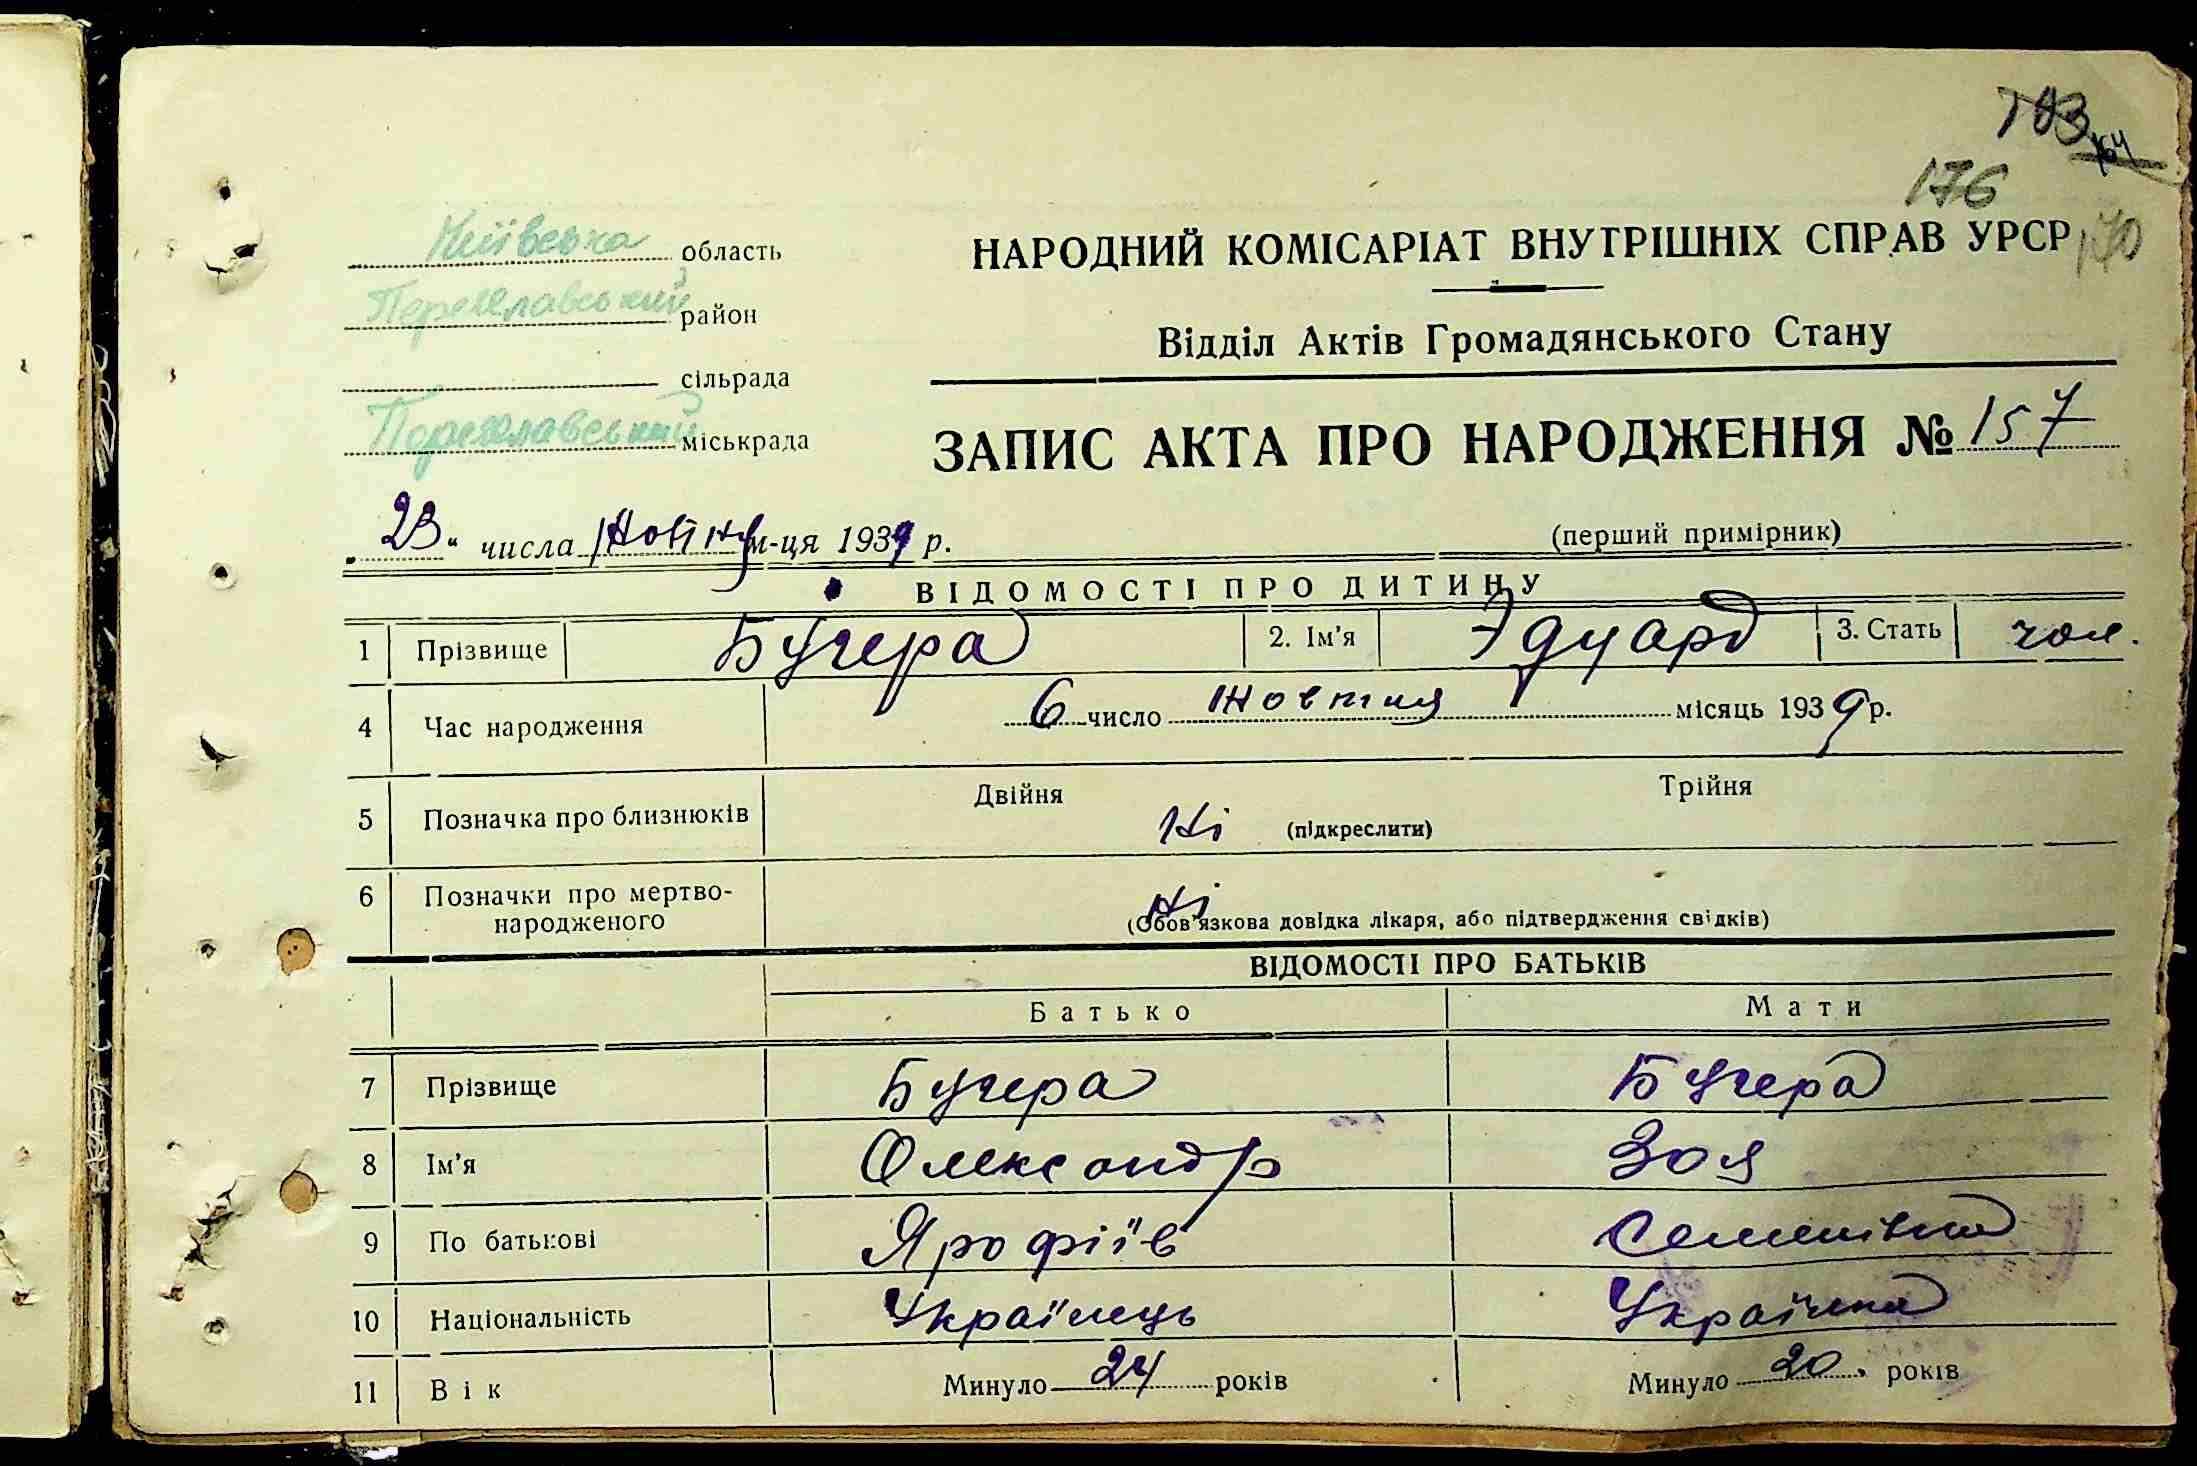 176
Київська область
НАРОДНИЙ КОМІСАРІАТ ВНУТРІШНІХ СПРАВ УРСР
170
Переяславський район
Відділ Актів Громадянського Стану
сільрада
Переяславський міськрада
ЗАПИС АКТА ПРО НАРОДЖЕННЯ № 157
„ 23 “ числа м-ця 1939 р.
(перший примірник)
ВІДОМОСТІ ПРО ДИТИНУ
1 Прізвище Бучера 2. Ім'я Эдуард 3. Стать чол.
4 Час народження 6 число жовтня місяць 1939 р.
5 Позначка про близнюків Двійня Ні (підкреслити) Трійня
6 Позначки про мертво-
народженого Ні (Обов'язкова довідка лікаря, або підтвердження свідків)
ВІДОМОСТІ ПРО БАТЬКІВ
Батько Мати
7 Прізвище Бучера Бучера
8 Ім'я Олександр Зоя
9 По батькові Ярофіїв Семенівна
10 Національність Українець Українка
11 Вік Минуло 24 років Минуло 20 років